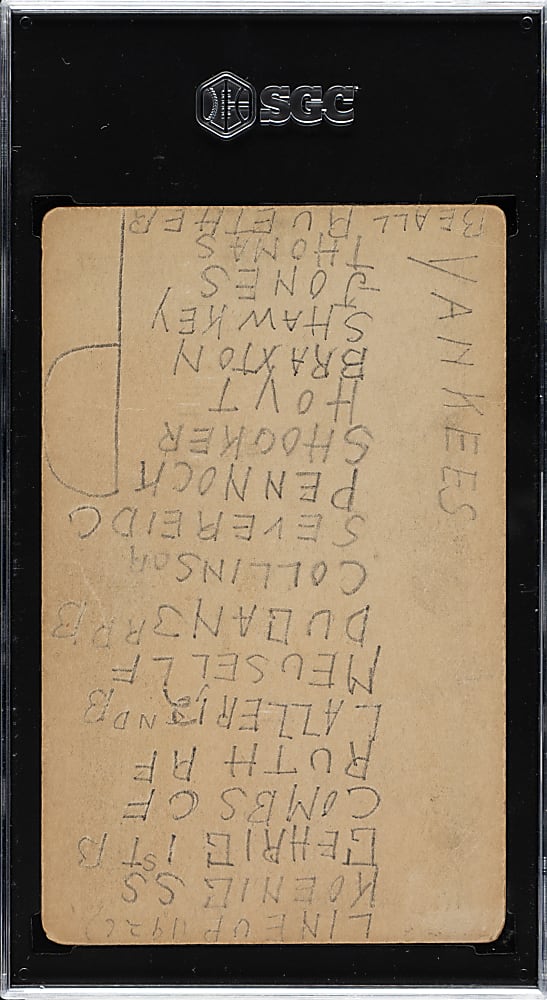 SGC
LINEUP (1926)
KOENIG SS
GEHRIG 1ST B
COMBS CF
RUTH RF
LAZZERI 2ND B
MEUSEL LF
DUGAN 3RD B
COLLINS
SEVEREID C
PENNOCK
SHOCKER
HOYT
BRAXTON
SHAWKEY
JONES
THOMAS
BEALL RUETHER
YANKEES